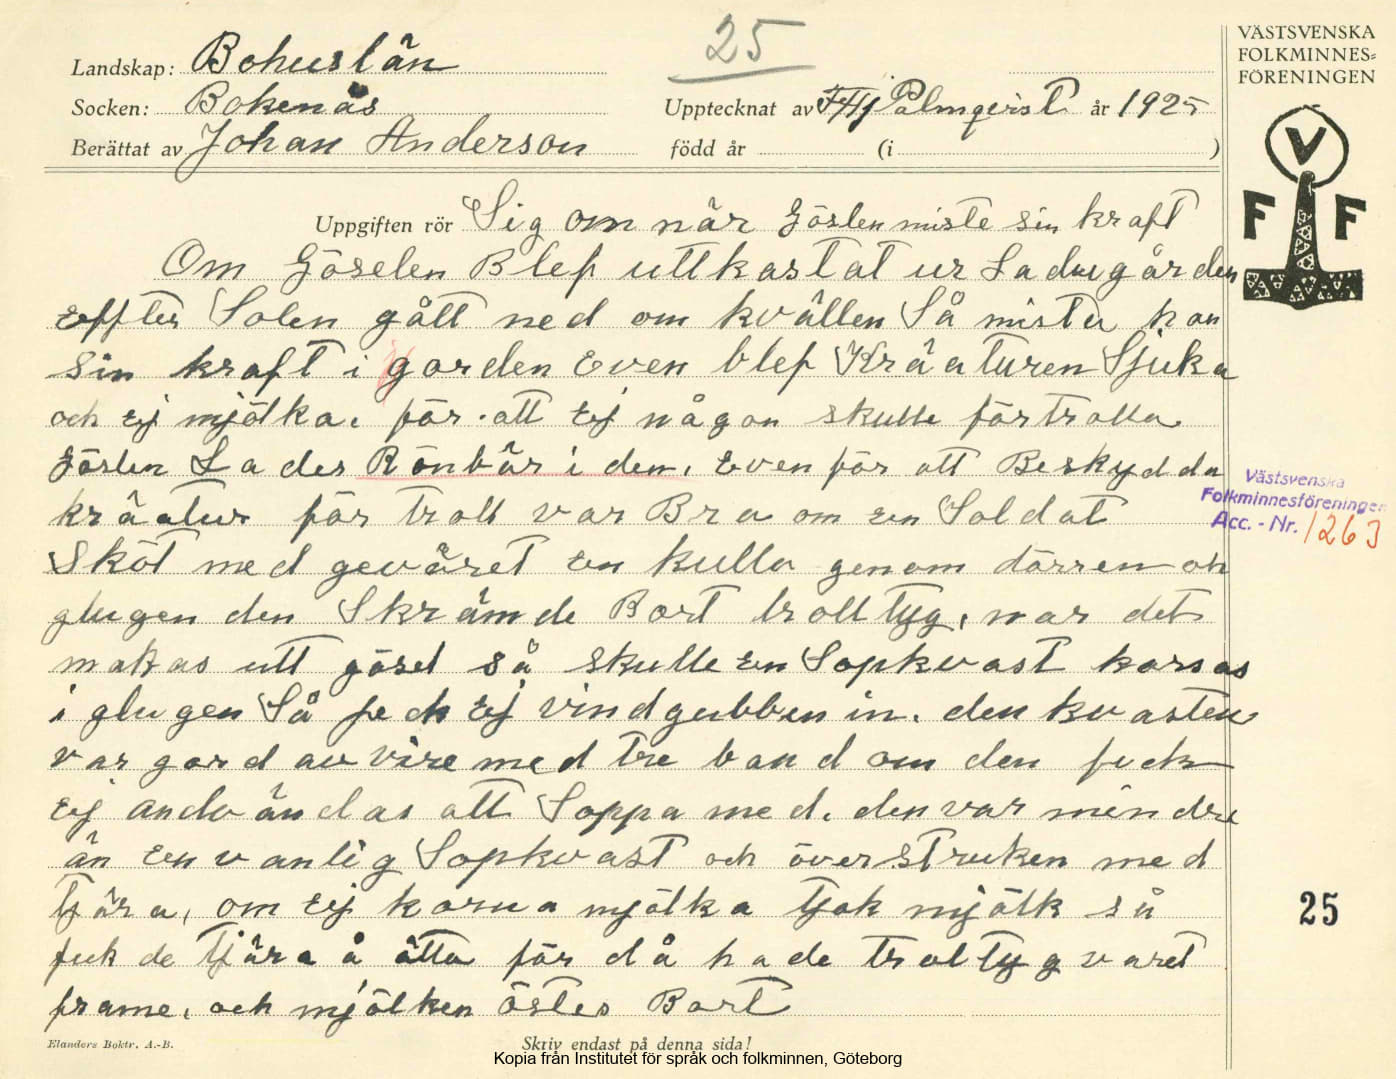 25
VÄSTSVENSKA
FOLKMINNES=
FÖRENINGEN
Landskap: Bohuslän
Socken: Bokenäs
Upptecknat av F Hj Palmqvist år 1925
Berättat av Johan Anderson
född år (i )
V
F F
Uppgiften rör Sig om när Göslen miste sin kraft
Om Göselen Blef uttkastat ur Ladugården
effter Solen gått ned om kvällen Så mister han
sin kraft i gorden Even blef Kräaturen Sjuka
och Ej mjölka. för att Ej någon skulle förtrolla
Göslen Lades Rönbär i den. Even för att Beskydda
kräatur för troll var Bra om en Soldat
Sköt med geväret En kulla genom dörren och
glugen den Skrämde Bort trolltyg, nar det
makas utt gösel så skulle En Sopkvast korsas
i glugen Så feck Ej vindgubben in. den kvasten
var gord av vire med tre band om den fick
Ej andvändas att Soppa med. den var mindre
än En vanlig Sopkvast och överstruken med
tjära, om Ej korna mjölka tjok mjölk så
fick de tjära å ätta för då hade troltyg varet
frame, och mjölken östes Bort
Västsvenska
Folkminnesföreningen
Acc. - Nr. 1263
25
Elanders Boktr. A.-B.
Skriv endast på denna sida!
Kopia från Institutet för språk och folkminnen, Göteborg